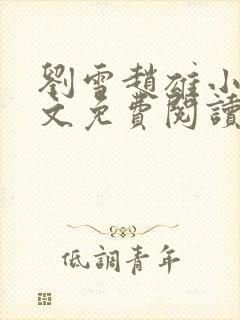 劉雪趙雄小
文免費閱讀
低調青年